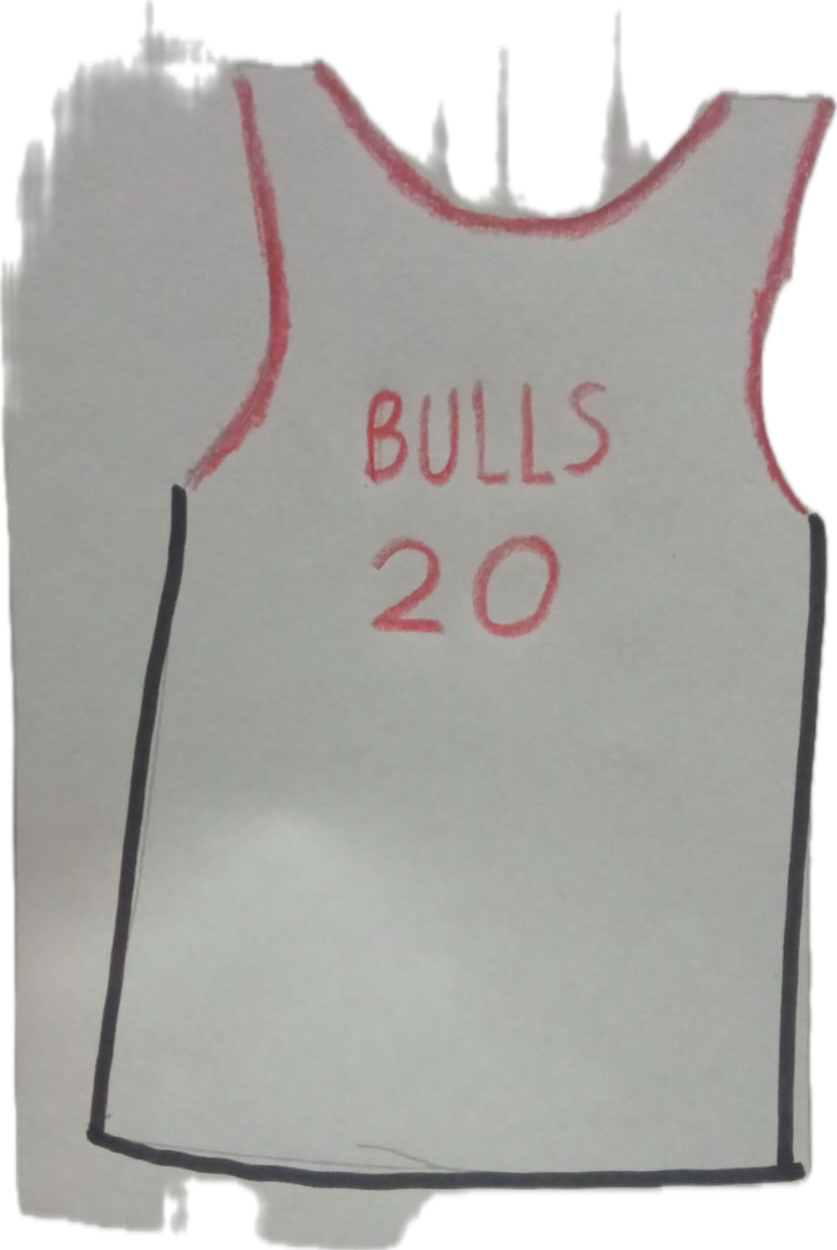 BULLS
20